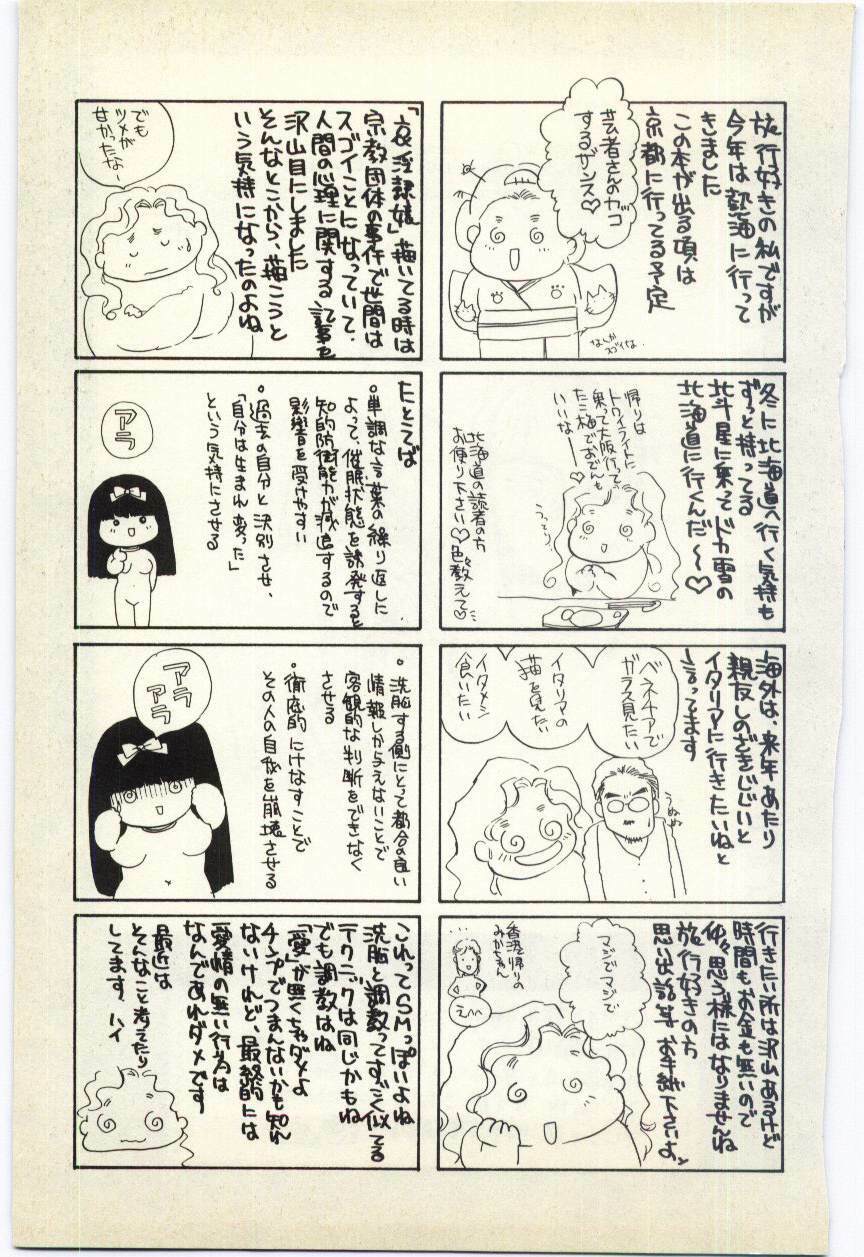 旅行好きの私ですが
今年は熱海に行って
きました
この本が出る頃は
京都に行ってる予定
芸者さんのカッコ
するザンス♡
なんか
スゴイな
冬に北海道へ行く気持も
ずっと持ってる
北斗星に乗ってドカ雪の
北海道に行くんだ～♡
帰りは
トワイライトに
乗って大阪行って
たこ梅でおでんも
いいな――♡
うっとり
北海道の読者の方
お便り下さい♡
色々教えて♡
海外は、来年あたり
親友しのざきじじいと
イタリアに行きたいねと
言ってます
ベネチアで
ガラス見たい
イタリアの
猫を見たい
イタメシ
食いたい
うぬぬ
行きたい所は沢山あるけど
時間もお金も無いので
仲々思う様にはなりませんね
旅行好きの方
思い出話等お手紙下さいよ
マジでマジで
香港帰りの
みかちゃん
えへへ
「哀淫隷嬢」描いてる時は
宗教団体の事件で世間は
スゴイことになっていて、
人間の心理に関する記事を
沢山目にしました
そんなとこから、描こうと
いう気持になったのよね
でも
ツメが
甘かったな～
たとえば
・単調な言葉の繰り返しに
よって、催眠状態を誘発すると
知的防衛能力が減退するので
影響を受けやすい
・過去の自分と決別させ、
「自分は生まれ変った」
という気持にさせる
アラ
・洗脳する側にとって都合の良い
情報しか与えないことで
客観的な判断をできなく
させる
・徹底的にけなすことで
その人の自我を崩壊させる
アラ
アラ
これってSMっぽいよね
洗脳と調教ってすごく似てる
テクニックは同じかもね
でも調教はね
「愛」が無くちゃダメよ
チンプでつまんないかも知れ
ないけれど、最終的には
愛情の無い行為は
なんであれダメです
最近は
そんなこと考えたり
してます、ハイ